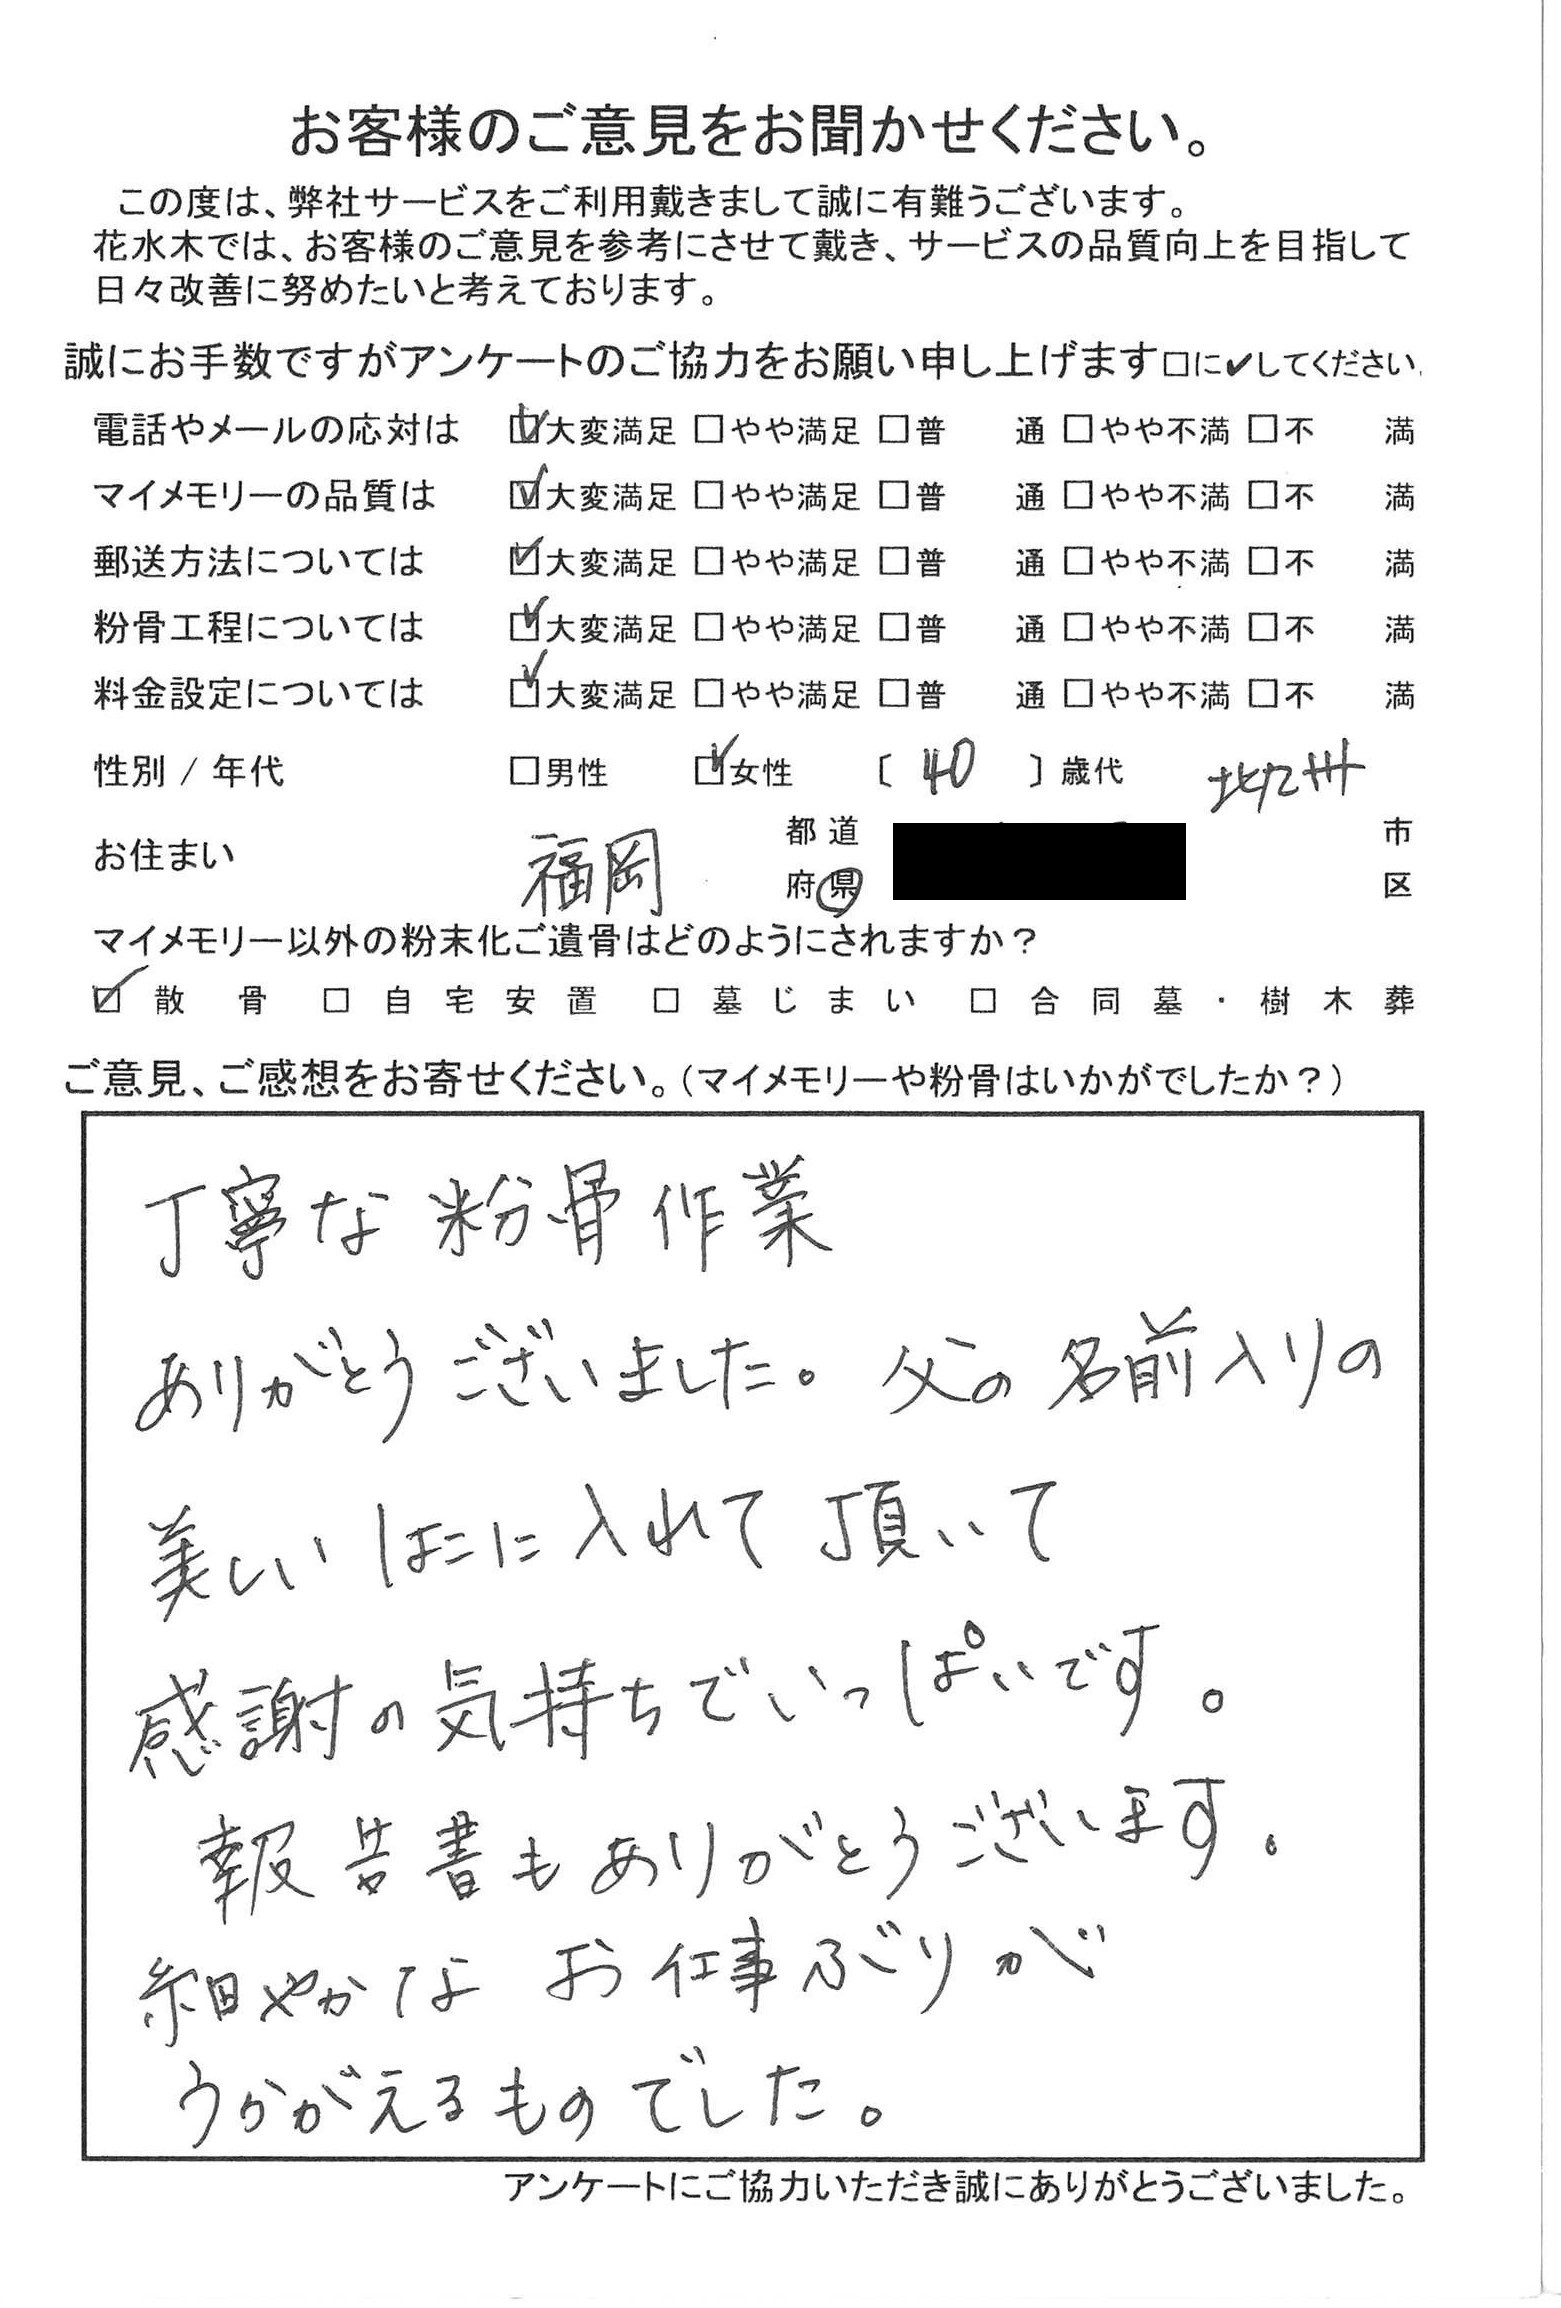 お客様のご意見をお聞かせください。
この度は、弊社サービスをご利用戴きまして誠に有難うございます。
花水木では、お客様のご意見を参考にさせて戴き、サービスの品質向上を目指して
日々改善に努めたいと考えております。
誠にお手数ですがアンケートのご協力をお願い申し上げます□に✔してください。
電話やメールの応対は ☑大変満足 □やや満足 □普 通 □やや不満 □不 満
マイメモリーの品質は ☑大変満足 □やや満足 □普 通 □やや不満 □不 満
郵送方法については ☑大変満足 □やや満足 □普 通 □やや不満 □不 満
粉骨工程については ☑大変満足 □やや満足 □普 通 □やや不満 □不 満
料金設定については ☑大変満足 □やや満足 □普 通 □やや不満 □不 満
性別 / 年代 □男性 ☑女性 〔 40 〕歳代 北九州
お住まい 福岡 都道府県 市区
マイメモリー以外の粉末化ご遺骨はどのようにされますか？
☑ 散骨 □ 自宅安置 □ 墓じまい □ 合同墓・樹木葬
ご意見、ご感想をお寄せください。（マイメモリーや粉骨はいかがでしたか？）
丁寧な粉骨作業
ありがとうございました。父の名前入りの
美しいはこに入れて頂いて
感謝の気持ちでいっぱいです。
報告書もありがとうございます。
細やかなお仕事ぶりが
うかがえるものでした。
アンケートにご協力いただき誠にありがとうございました。